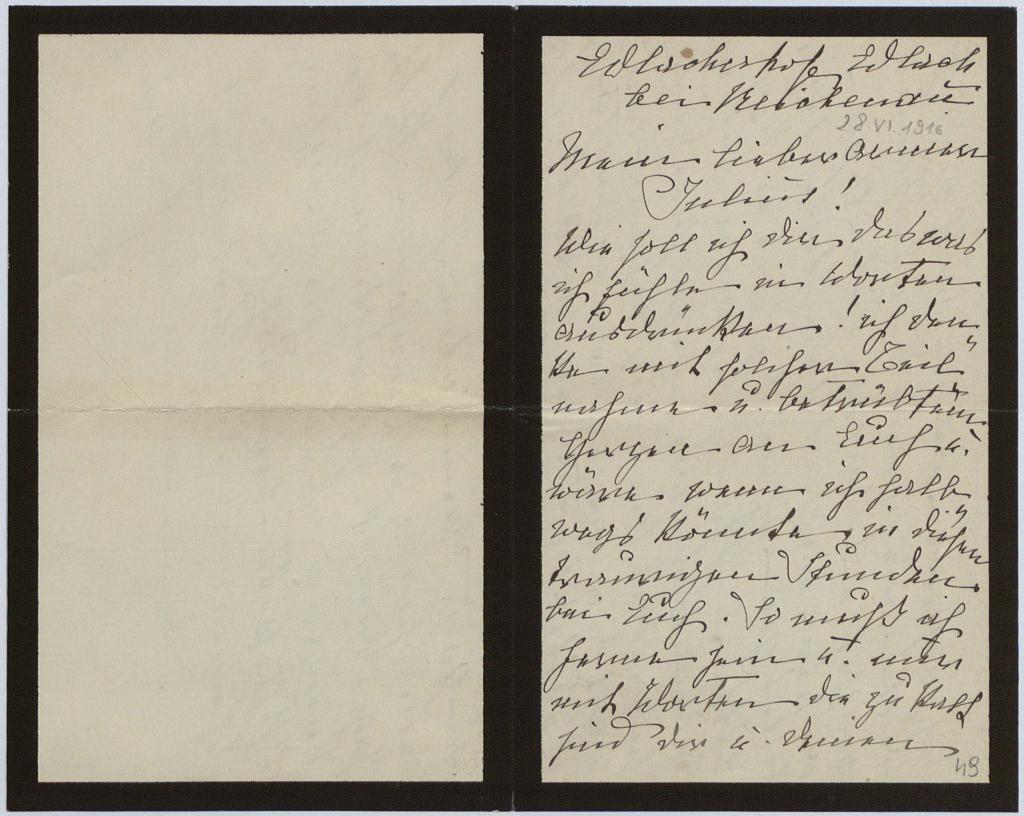 Edlacherhof Edlach
bei Reichenau
28.VI.1916
Mein lieber armer
Julius!
Wie soll ich dir das was
ich fühle in Worten
ausdrücken! ich den„
ke mit solcher Teil„
nahme u. betrübtem
Herzen an Euch u.
wäre wenn ich halb„
wegs könnte in diesen
traurigen Stunden
bei Euch. So muß ich
ferne sein u. nur
mit Worten die zu kalt
sind dir u. deinen
49